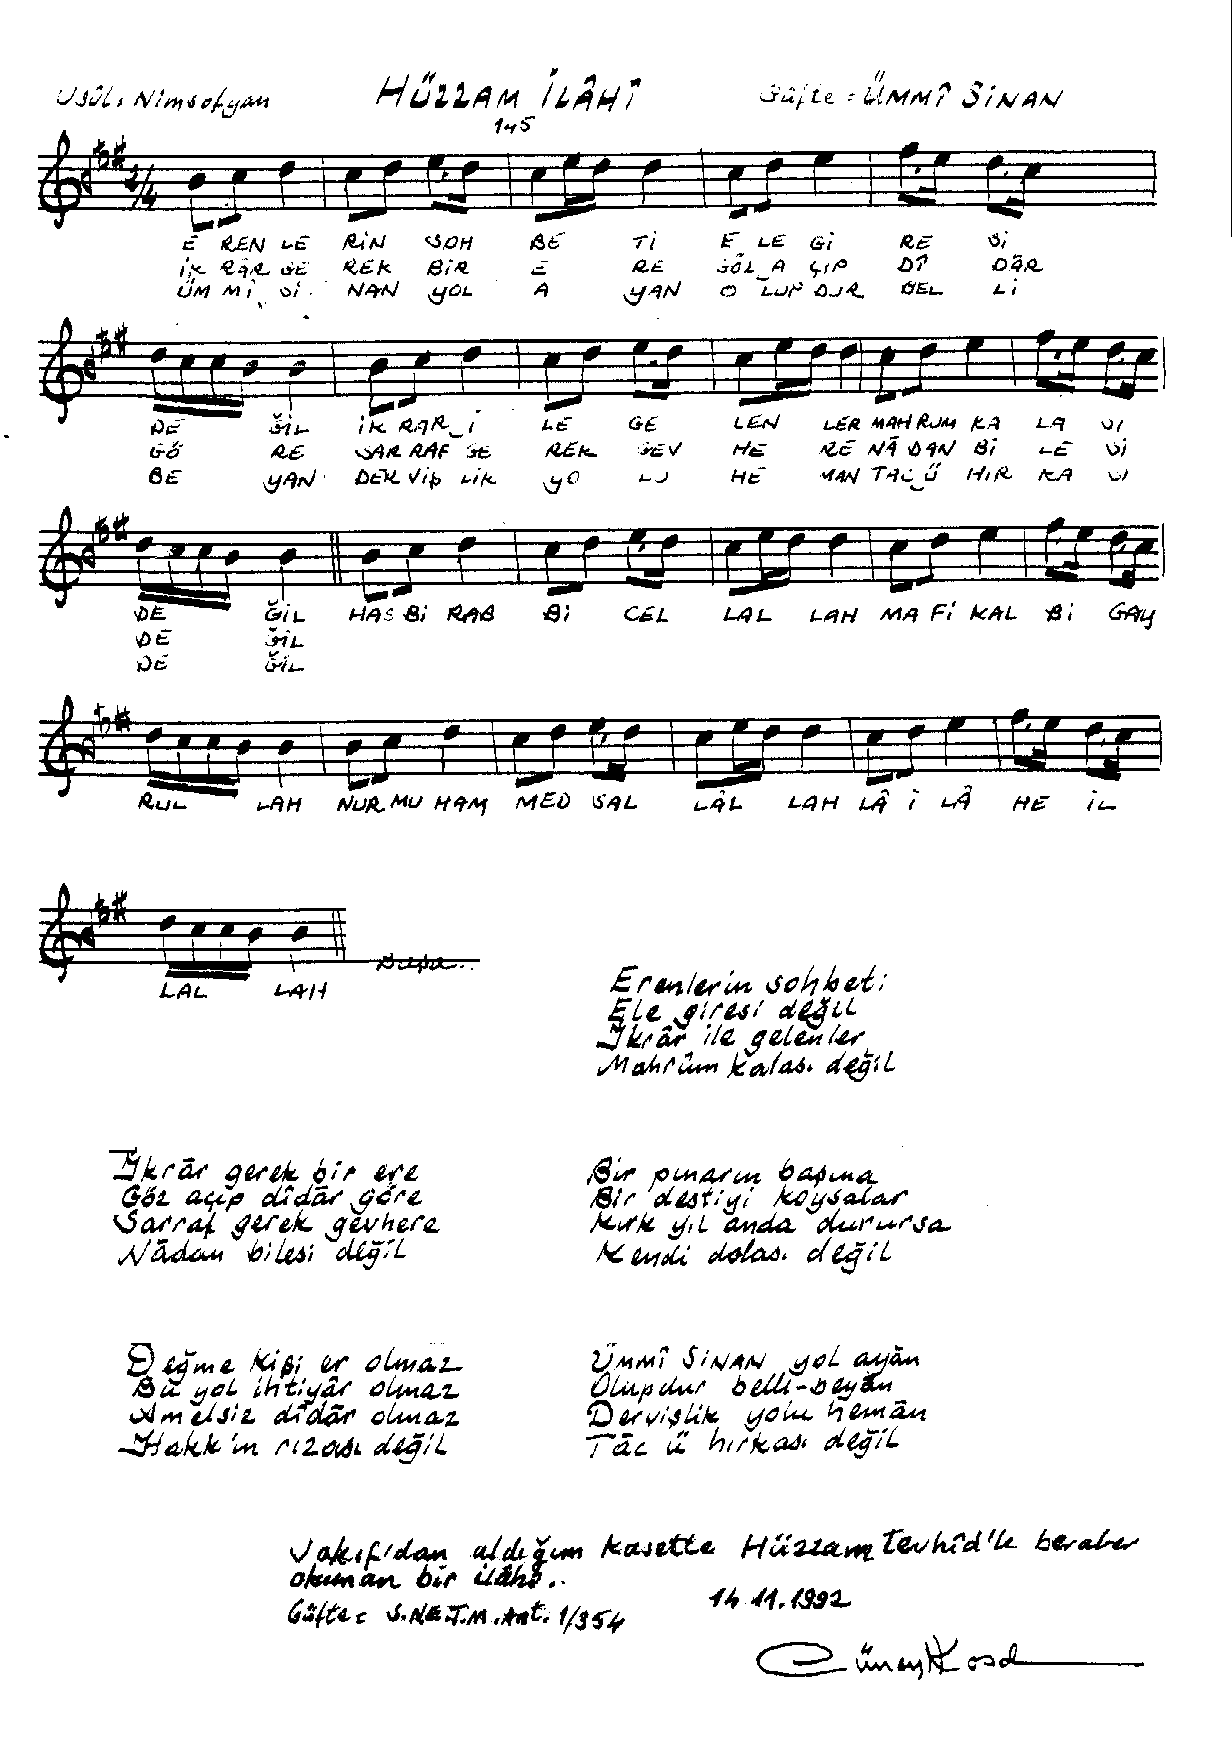 Usûl: Nimsofyan HÜZZAM İLÂHÎ Güfte: ÜMMÎ SİNAN
145
2/4
E REN LE RİN SOH BE Tİ E LE Gİ RE Sİ
İK RÂR GE REK BİR E RE GÖZ_A ÇIP DÎ DÂR
ÜM MÎ_Sİ NAN YOL A YAN O LUP DUR BEL Lİ
DE ĞİL İK RAR_İ LE GE LEN LER MAH RUM KA LA SI
GÖ RE SAR RAF GE REK GEV HE RE NÂ DAN Bİ LE Sİ
BE YAN DER VİŞ LİK YO LU HE MAN TAC_Ü HIR KA SI
DE ĞİL HAS Bİ RAB Bİ CEL LAL LAH MA Fİ KAL Bİ GAY
DE ĞİL
DE ĞİL
RUL LAH NUR MU HAM MED SAL LÂL LAH LÂ İ LÂ HE İL
LAL LAH
Erenlerin sohbeti
Ele giresi değil
İkrâr ile gelenler
Mahrûm kalası değil
İkrâr gerek bir ere
Göz açıp dîdâr göre
Sarraf gerek gevhere
Nâdan bilesi değil
Bir pınarın başına
Bir destiyi koysalar
Kırk yıl anda durursa
Kendi dolası değil
Değme kişi er olmaz
Bu yol ihtiyâr olmaz
Amelsiz dîdâr olmaz
Hakk'ın rızası değil
ÜMMÎ SİNAN yol ayân
Olupdur belli-beyân
Dervişlik yolu hemân
Tâc ü hırkası değil
Vakıf'dan aldığım kasette Hüzzam Tevhîd'le beraber
okunan bir ilâhi..
14.11.1992
Güfte: S.N.E.T.M.Ant. 1/354